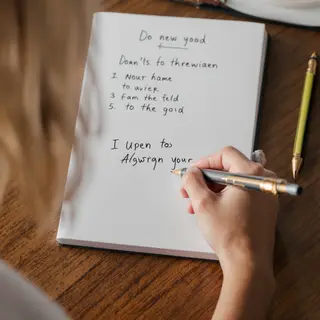 Do new yood
Doan'ts fo threwiaen
1. Nour hame
to avier
3 Fam the feld
5. to the goid
I Upen to:
Algwrgn your